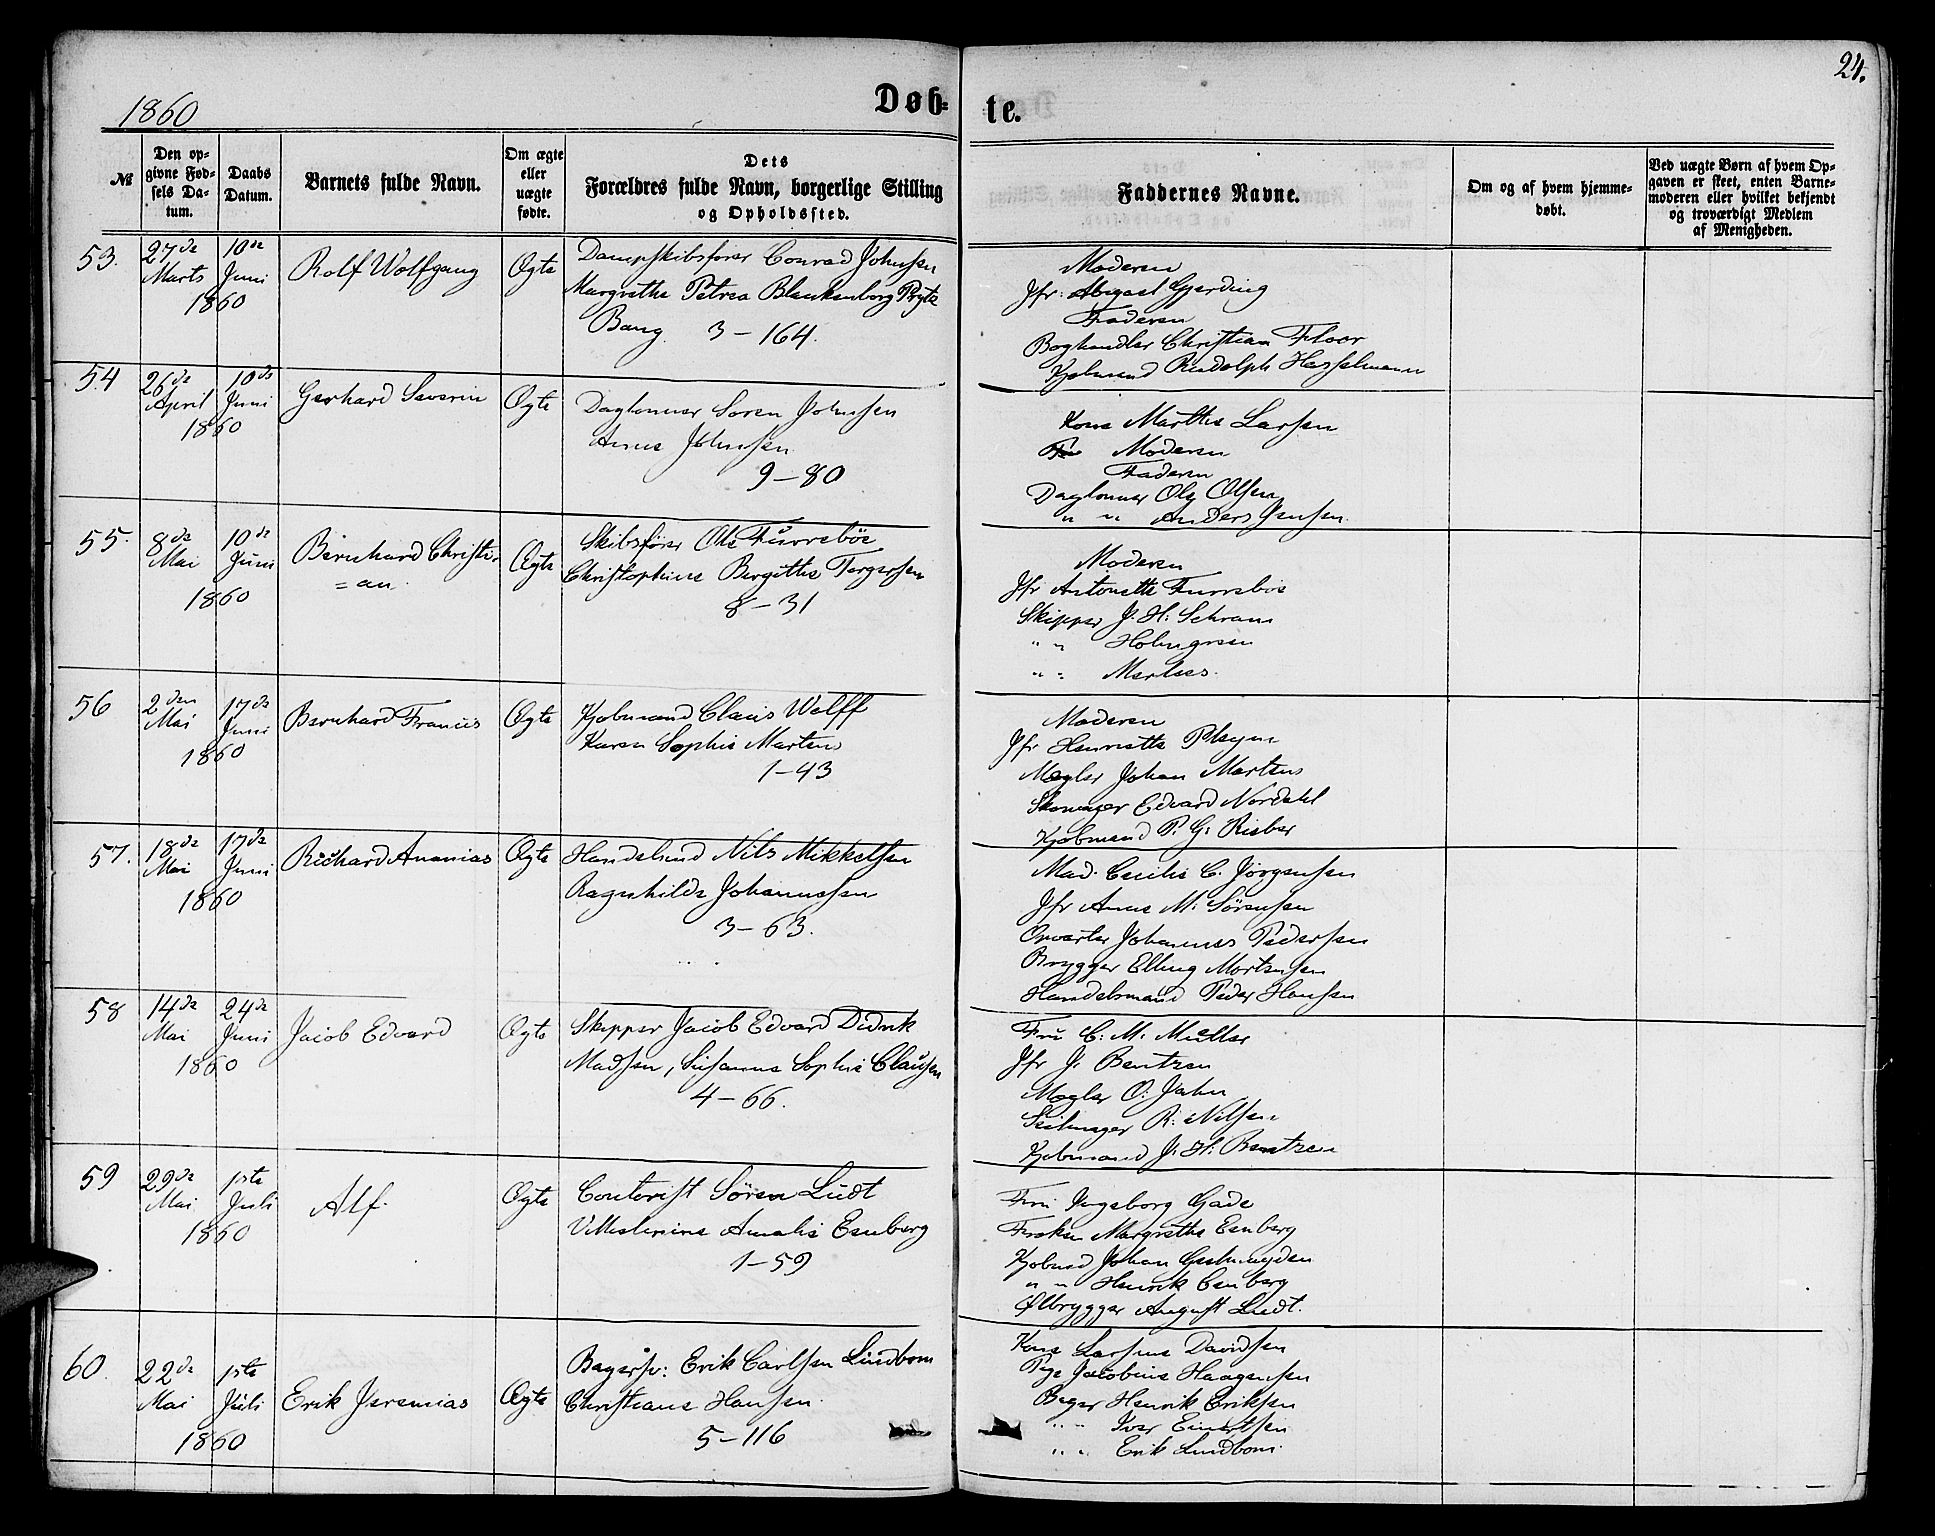 24.
1860
Døb-
te.
№
Den op-
givne Fød-
sels Da-
tum.
Daabs
Datum.
Barnets fulde Navn.
Om ægte
eller
uægte
fødte.
Dets
Forældres fulde Navn, borgerlige Stilling
og Opholdssted.
Faddernes Navne.
Om og af hvem hjemme-
døbt.
Ved uægte Børn af hvem Op-
gaven er skeet, enten Barne-
moderen eller hvilket bekjendt
og troværdigt Medlem
af Menigheden.
53.
27de
Marts
10de
Juni
1860
Rolf Wolfgang
Ægte
Dampskibsfører Conrad Johnsen
Margrethe Petrea Blankenborg Prytz
Bang. 3-164.
Moderen
Jfr: Abigael Gjerding
Faderen
Boghandler Christian Floor
Kjøbmand Rudolph Hasselmann
54
26de
April
10de
Juni
1860
Gerhard Severin
Ægte
Daglonner Soren Johnsen
Anne Johnsen
9-80
Kone Marthe Larsen
Moderen
Faderen
Daglonner Ole Olsen
" " Anders Jensen.
55.
8de
Mai
10de
Juni
1860
Bernhard Christi-
=an.
Ægte
Skibsfører Ole Furrebøe
Christophine Bergitte Tergersen
8-31
Moderen
Jfr Antonette Furreboe
Skipper J. H. Schram
" " Holmgreen
" "
56
2den
Mai
17de
Juni
1860
Bernhard Franciis
Ægte
Kjobmand Claus Wolff
Karen Sophie Martens
1-43
Moderen
Jfr Henriette Pleym
Mægler Johan Martens
Skomager Edvard Nordahl
Kjobmand P. G. Rieber
57.
18de
Mai
17de
Juni
1860
Richard Ananias
Ægte
Handelsmd Nils Mikkelsen
Ragnhilde Johannessen
3-63.
Mad. Cecilie C. Jørgensen
Jfr Anne M. Sørensen
Opvarter Johannes Pedersen
Brygger Elling Mortensen
Handelsmand Peder Hansen
58
14de
Mai
24de
Juni
1860
Jacob Edvard
Ægte
Skipper Jacob Edvard Didrik
Madsen, Susanne Sophie Clausen
4-66.
Fru C. M. Müller
Jfr J. Bentzen
Mægler O. Jahn
Seilmager R. Nilsen
Kjobmand J. H. Bentzen
59
29de
Mai
1ste
Juli
1860
Alf.
Ægte
Contorist Søren Lüdt
Villhelmine Amalie Isenberg
1-59
Fru Ingeborg Gade
Frøken Margrethe Isenberg
Kjobmd Johan Geelmuyden
" " Henrik Isenberg
Ølbrygger August Ludt.
60.
22de
Mai
1ste
Juli
1860
Erik Jeremias
Ægte
Bagersv: Erik Carlsen Lindbom
Christiane Hansen.
5-116
Kone Larsine Davidsen
Pige Jacobine Haagensen
Bager Henrik Eriksen
" " Iver Einertsen
" " Erik Lindbom